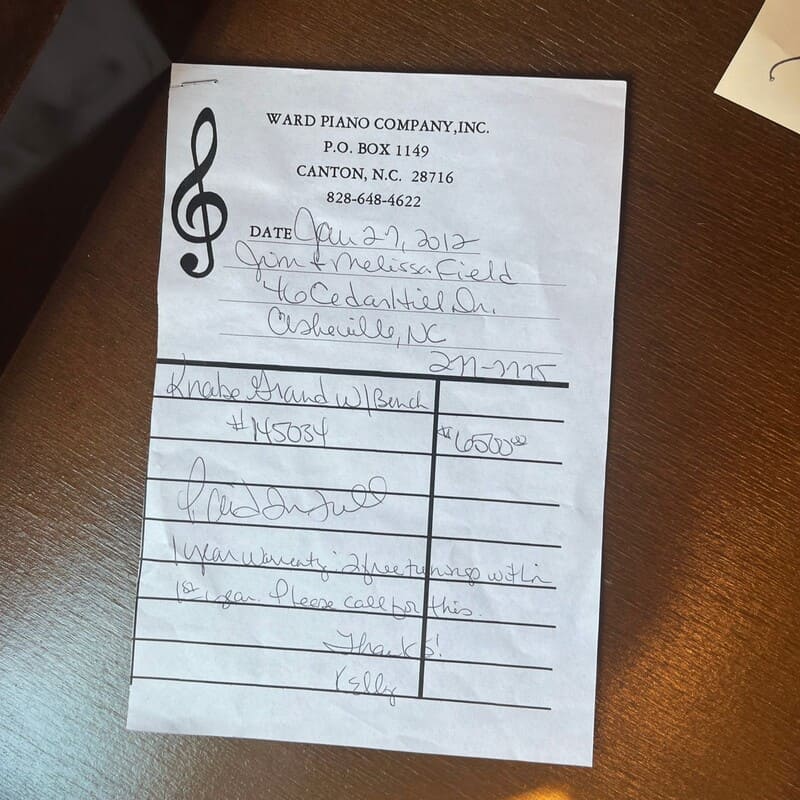 WARD PIANO COMPANY,INC.
P.O. BOX 1149
CANTON, N.C. 28716
828-648-4622
DATE Jan 27, 2012
Jim + Melissa Field
46 Cedar Hill Dr.
Asheville, NC
277-7775
Knabe Grand w/Bench
#145034 $6500.00
Paid In Full
1 year warranty. 2 free tunings within
1st year. Please call for this.
Thanks!
Kelly